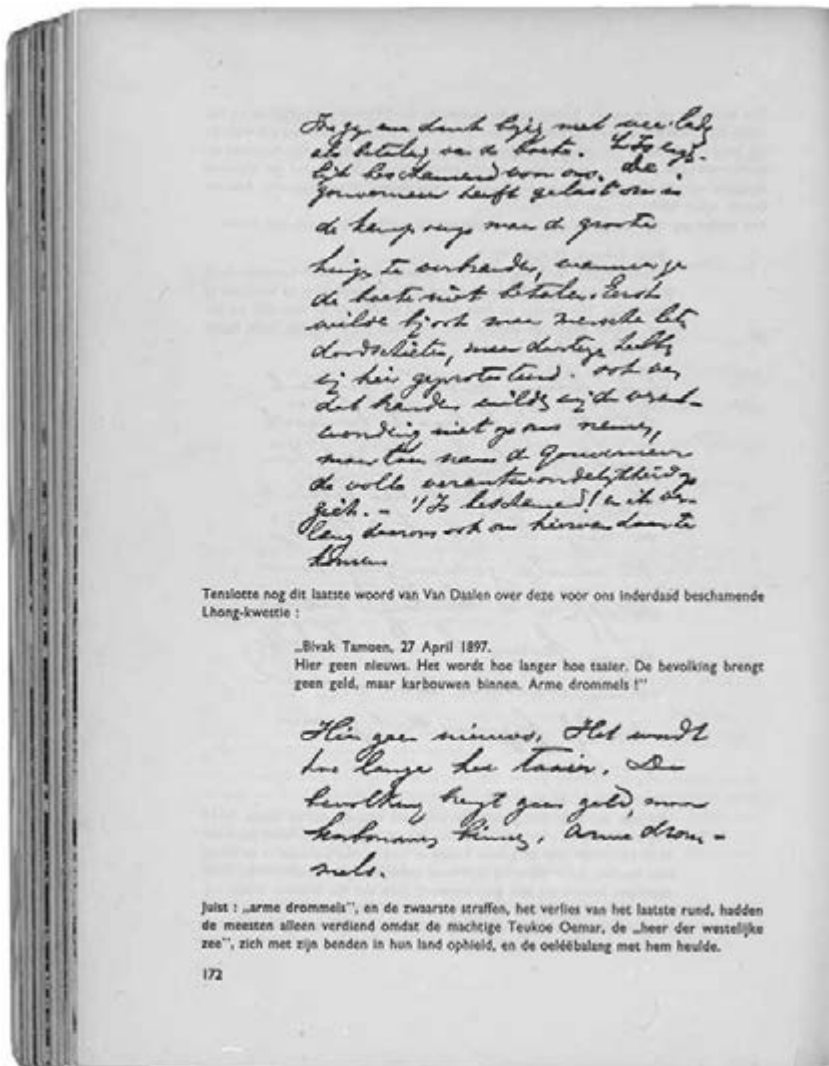 als betaling van de boete. 't Is eigen-
lijk beschamend voor ons. De
Gouverneur heeft gelast om in
de kampongs maar de groote
huizen te verbranden, wanneer ze
de boete niet betalen. Eerst
wilde hij ook maar menschen laten
doodschieten, maar dertegen hebben
wij hier geprotesteerd. Ook van
dat branden wilden wij de verant-
woording niet op ons nemen,
maar toen nam de Gouverneur
de volle verantwoordelijkheid op
zich. – 't Is beschamend! en ik ver-
lang daarom ook om hiervandaan te
komen
Tenslotte nog dit laatste woord van Van Daalen over deze voor ons inderdaad beschamende
Lhong-kwestie :
„Bivak Tamoen, 27 April 1897.
Hier geen nieuws. Het wordt hoe langer hoe taaier. De bevolking brengt
geen geld, maar karbouwen binnen. Arme drommels !”
Hier geen nieuws. Het wordt
hoe langer hoe taaier. De
bevolking brengt geen geld, maar
karbouwen binnen. Arme drom-
mels.
Juist : „arme drommels”, en de zwaarste straffen, het verlies van het laatste rund, hadden
de meesten alleen verdiend omdat de machtige Teukoe Oemar, de „heer der westelijke
zee”, zich met zijn benden in hun land ophield, en de oeléëbalang met hem heulde.
172